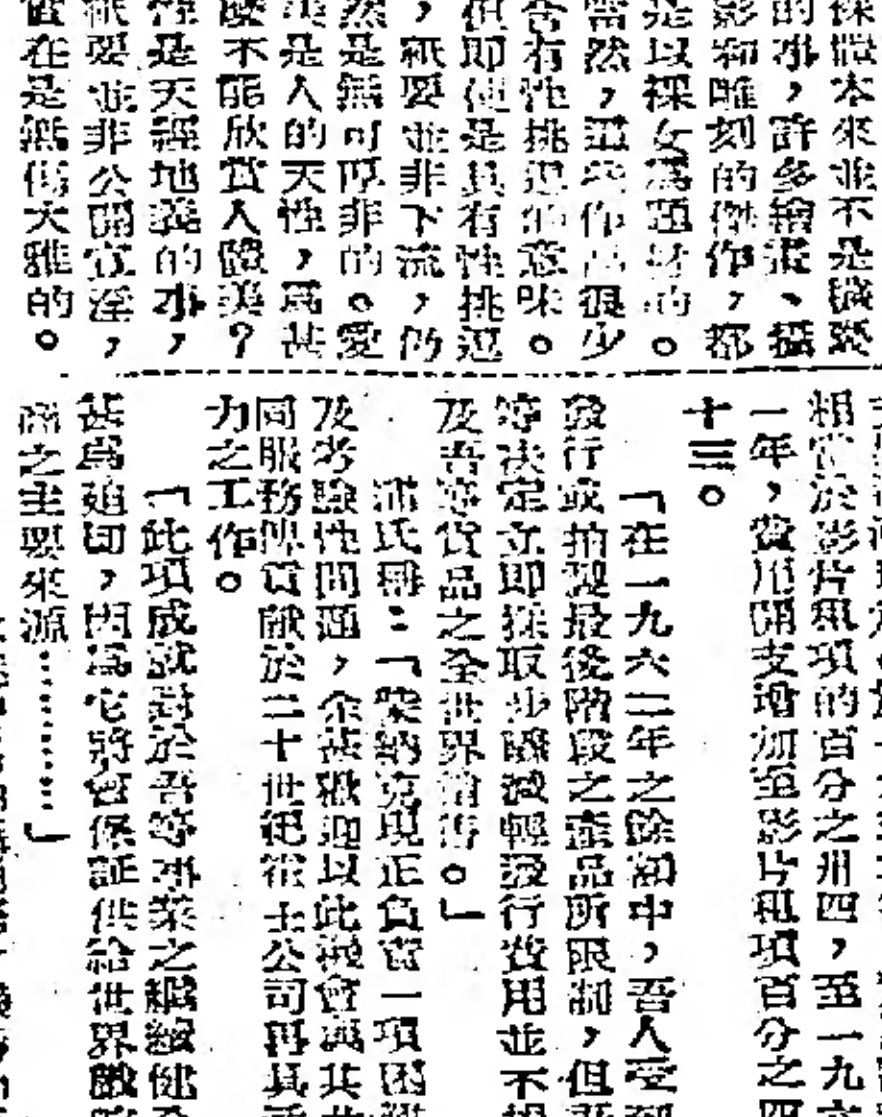 裸體本來並不是猥褻
的事，許多繪畫、攝
影和雕刻的傑作，都
是以裸女為題材的。
當然，這些作品很少
含有性挑逗的意味。
但即使是具有性挑逗
，祇要並非下流，仍
然是無可厚非的。愛
美是人的天性，為甚
麼不能欣賞人體美？
性是天經地義的事，
祇要並非公開宣淫，
實在是無傷大雅的。
相當於影片租項的百分之卅四，至一九六
一年，費用開支增加至影片租項百分之四
十三。
「在一九六二年之餘額中，吾人受到
發行或拍製最後階段之產品所限制，但吾
等決定立即採取步驟減輕發行費用並不損
及吾等貨品之全世界銷售。」
氏稱：「柴納克現正負責一項困難
及考驗性問題，余甚歡迎以此機會與其共
同服務俾貢獻於二十世紀霍士公司再具活
力之工作。
「此項成就對於吾等事業之繼續健全
甚為迫切，因為它將會保証供給世界戲院
商之主要來源…………」